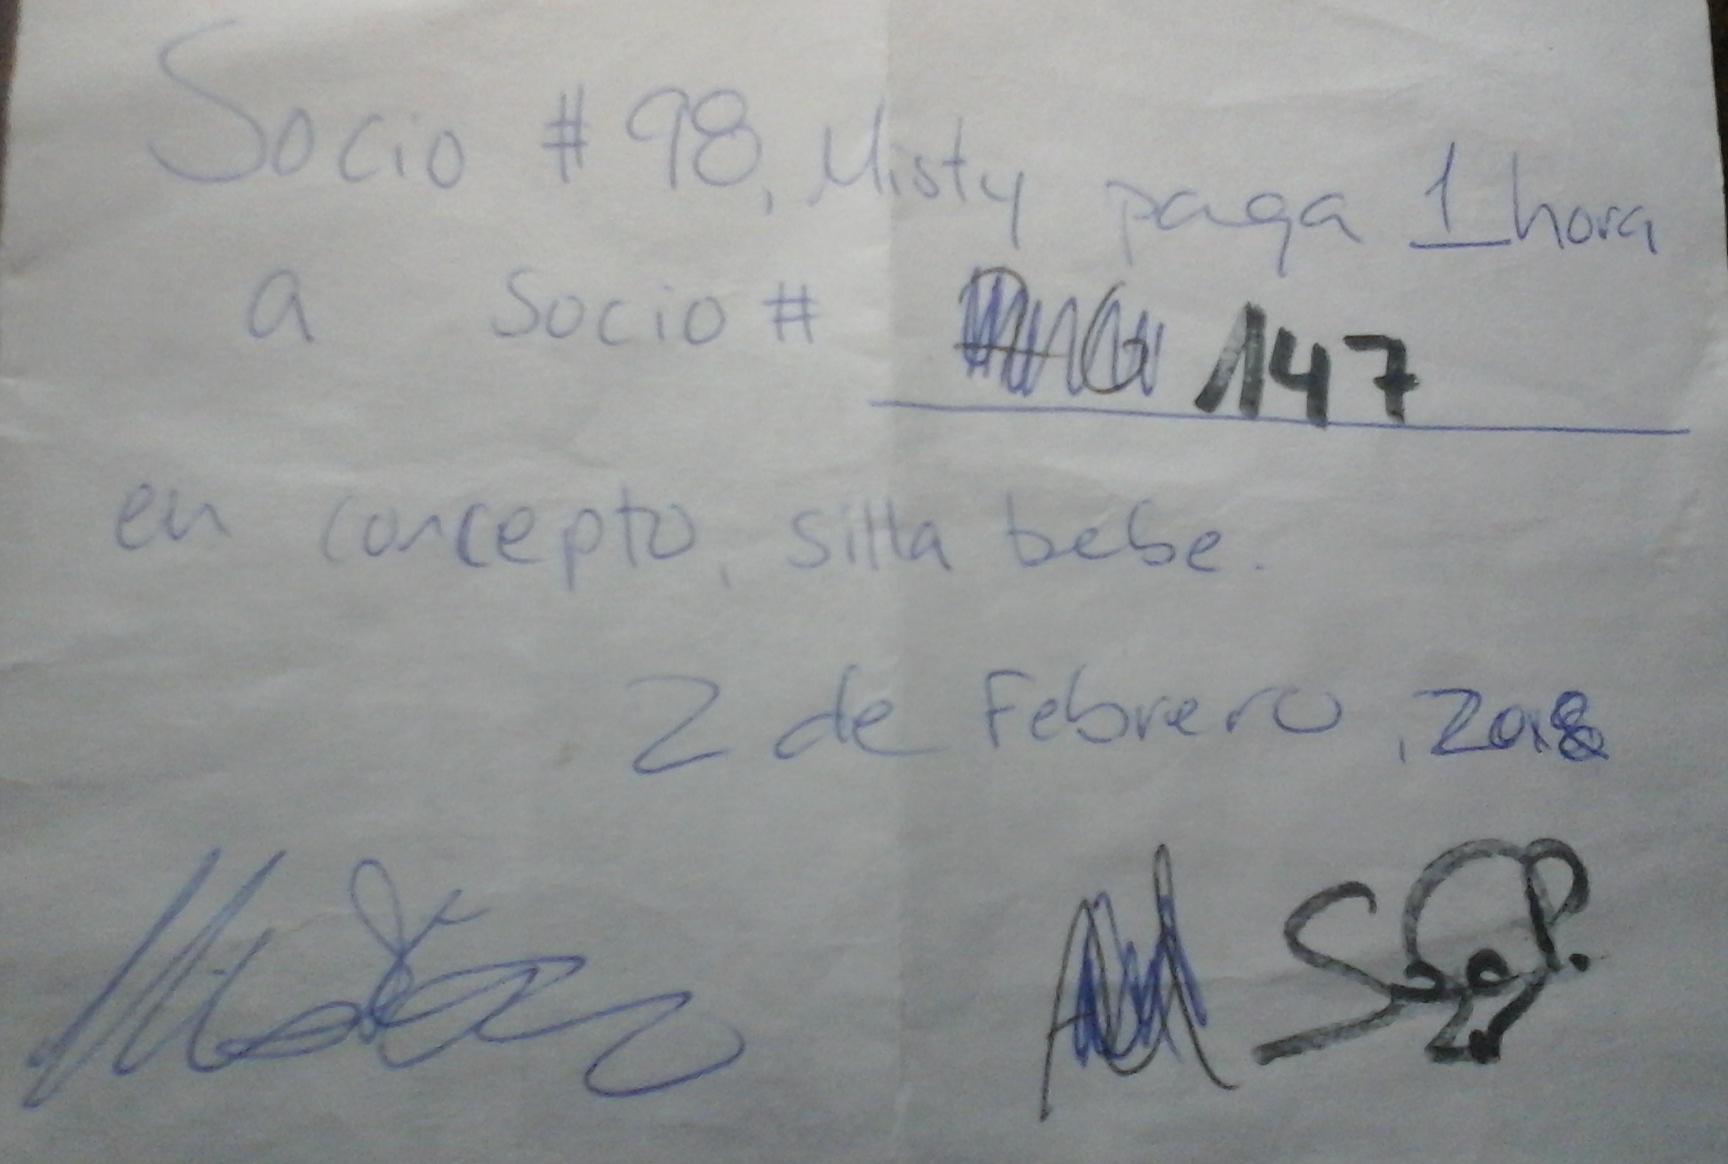 Socio # 98, Misty paga 1 hora
a socio # 147
en concepto, silla bebe.
2 de Febrero, 2018